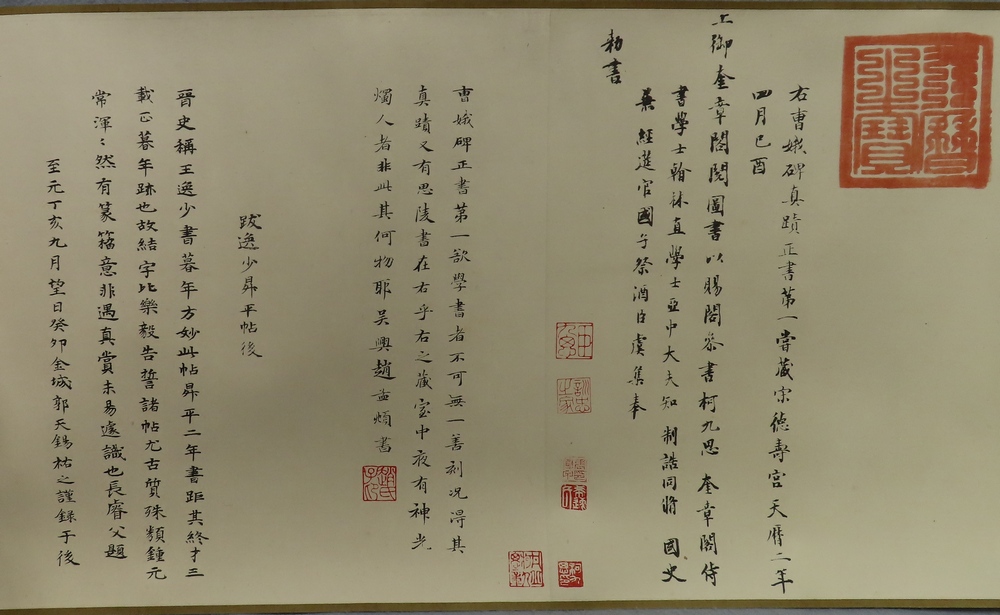 天曆之寶
右曹娥碑真蹟正書第一嘗藏宋德壽宮天曆二年
四月己酉
上御奎章閣閱圖書以賜閣參書柯九思奎章閣侍
書學士翰林直學士亞中大夫知 制誥同脩 國史
兼經筵官國子祭酒臣虞集奉
勑書
曹娥碑正書第一欲學書者不可無一善刻况得其
真蹟又有思陵書在右乎右之藏室中夜有神光
燭人者非此其何物耶吳興趙孟頫書
趙氏子昂
跋逸少昇平帖後
晉史稱王逸少書暮年方妙此帖昇平二年書距其終才三
載正暮年跡也故結字比樂毅告誓諸帖尤古質殊類鍾元
常渾〻然有篆籀意非遇真賞未易遽識也長睿父題
至元丁亥九月望日癸卯金城郭天錫祐之謹錄于後